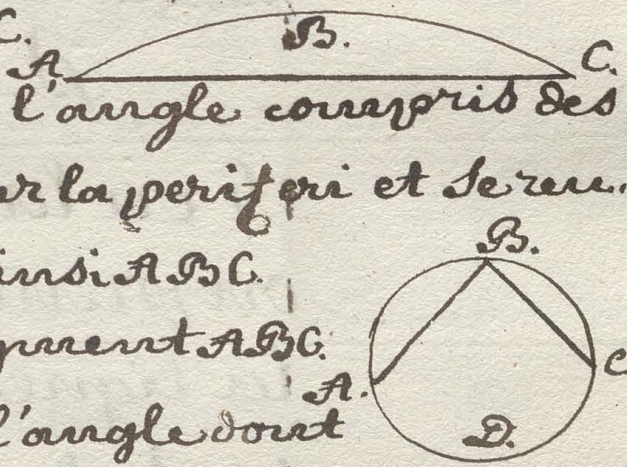 C.
B.
A. C.
l'angle compris des
ur la periferi et se ren.
B.
insi ABC.
gment ABC. C
A.
l'angle dont D.